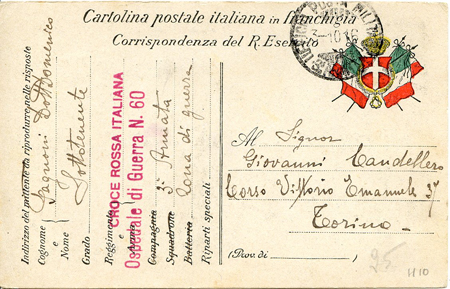 Cartolina postale italiana in franchigia
Corrispondenza del R. Esercito
POSTA MILIT
3-10-16
Indirizzo del mittente da riprodurre nelle risposte
Cognome
e
Nome
Dott Domenico
Grado
Sottotenente
Reggimento
e
Arma
CROCE ROSSA ITALIANA
Ospedale di Guerra N. 60
Compagnia
3ª Armata
Squadrone
Batteria
Zona di guerra
Riparti speciali
Al Signor
Giovanni Candellero
Corso Vittorio Emanuele 37
Torino
(Prov. di )
25
1110